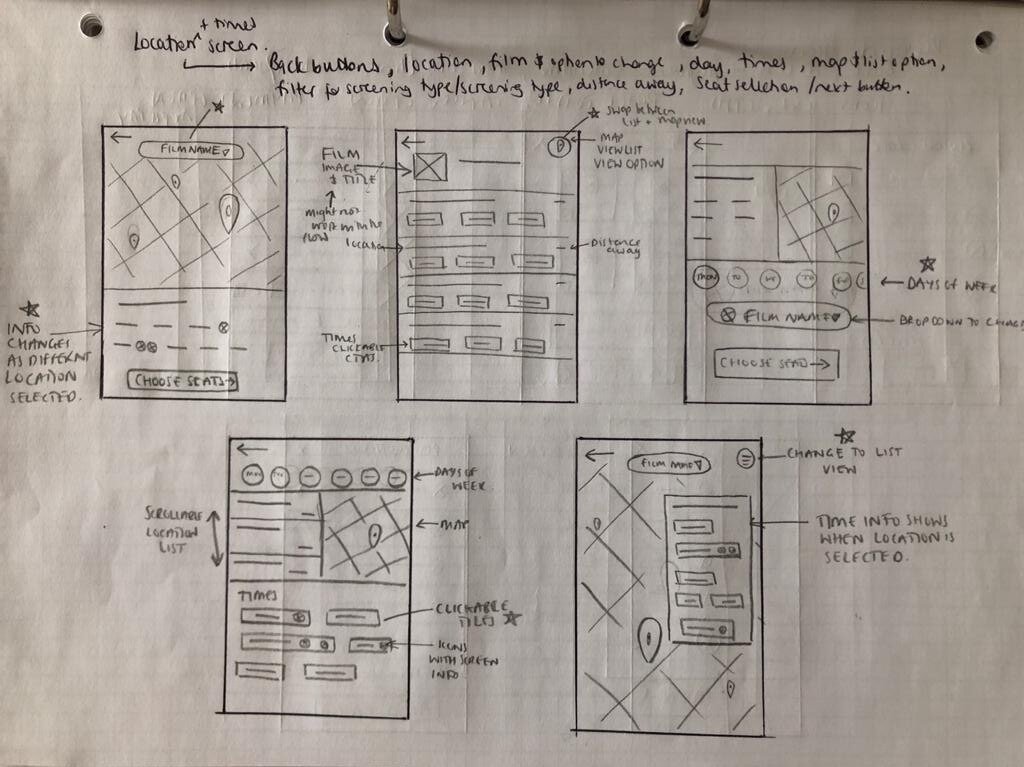 + times
Location ^ screen.
→ Back buttons, location, film & option to change, day, times, map & list option,
filter for screening type/screening type, distance away, seat selection/next button.
FILM NAME
INFO
CHANGES
AS DIFFERENT
LOCATION
SELECTED.
CHOOSE SEATS→
SWAP between
list + map view
MAP
VIEW LIST
VIEW OPTION
FILM
IMAGE
& TITLE
Might not
work with the
flow
location
Distance
away
TIMES
CLICKABLE
CTAS.
MON TU WE TU
DAYS OF WEEK
FILM NAME
DROPDOWN TO CHANGE
CHOOSE SEATS→
MON TU
DAYS OF
WEEK
SCROLLABLE
LOCATION
LIST
MAP
TIMES
CLICKABLE
TILES
ICONS
WITH SCREEN
INFO
FILM NAME
CHANGE TO LIST
VIEW
TIME INFO SHOWS
WHEN LOCATION IS
SELECTED.